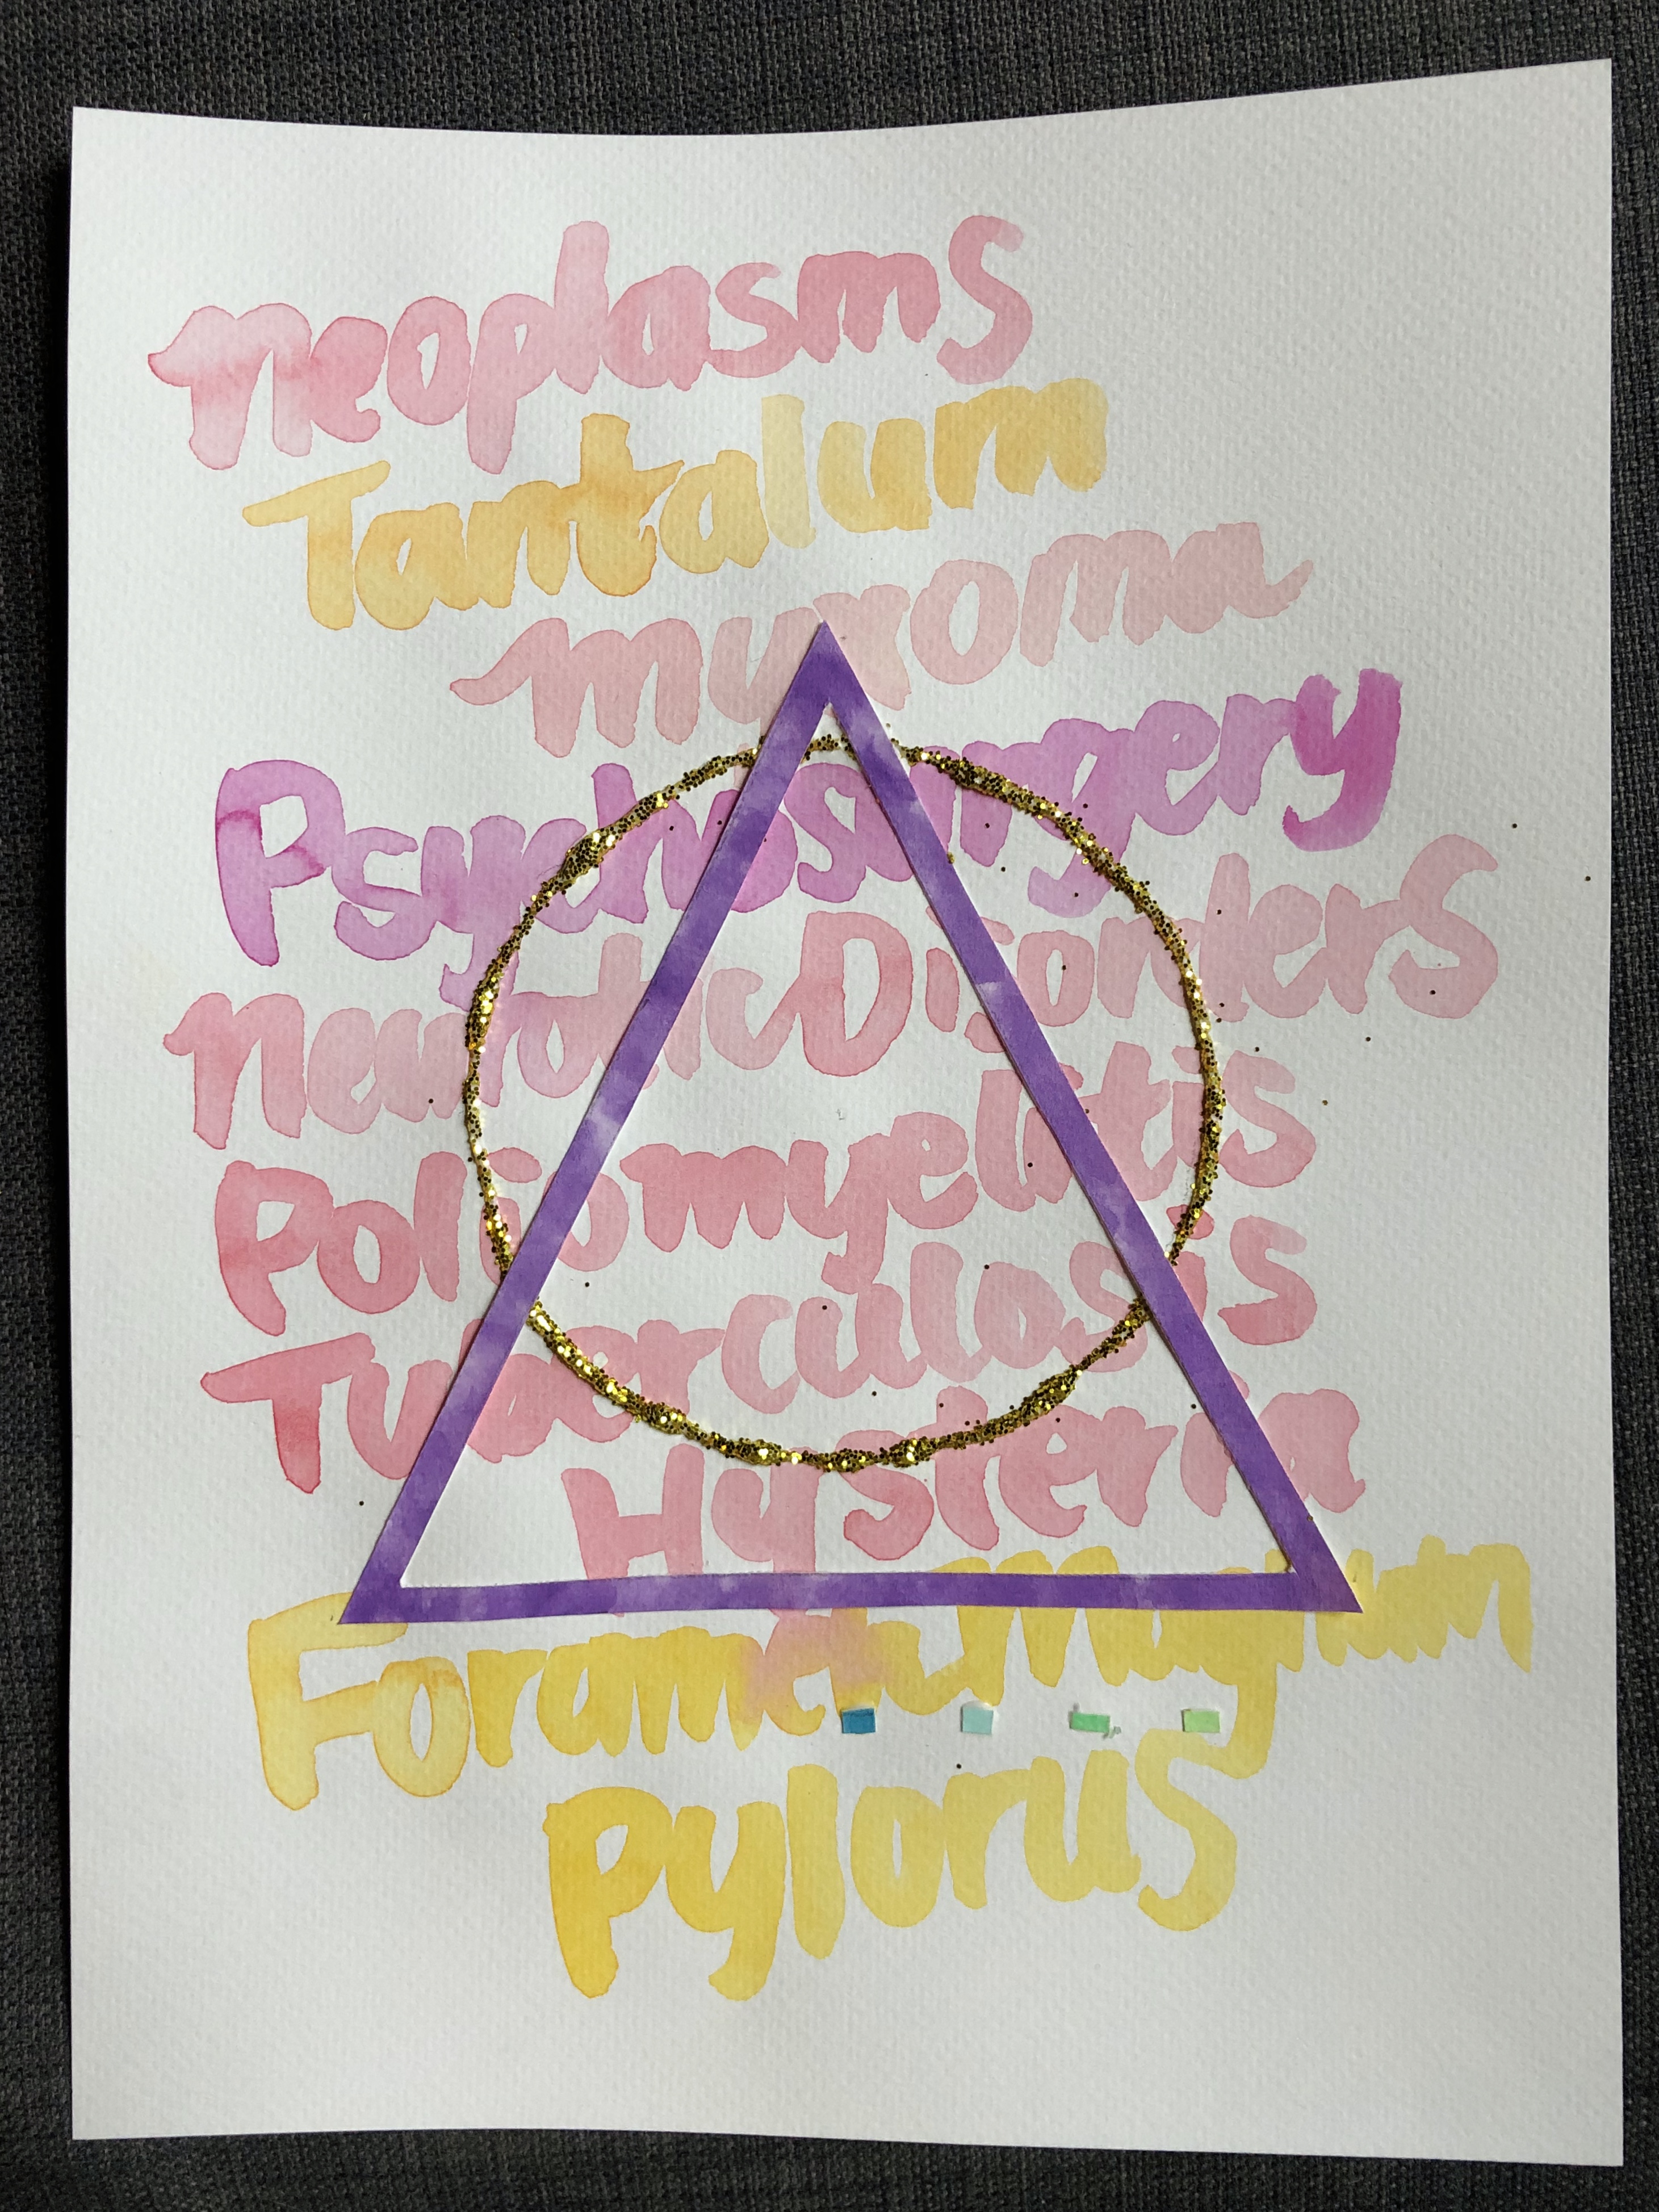 neoplasms
Tantalum
myxoma
Psychosurgery
Neurotic Disorders
Poliomyelitis
Tuberculosis
Hysteria
Foramen Magnum
Pylorus